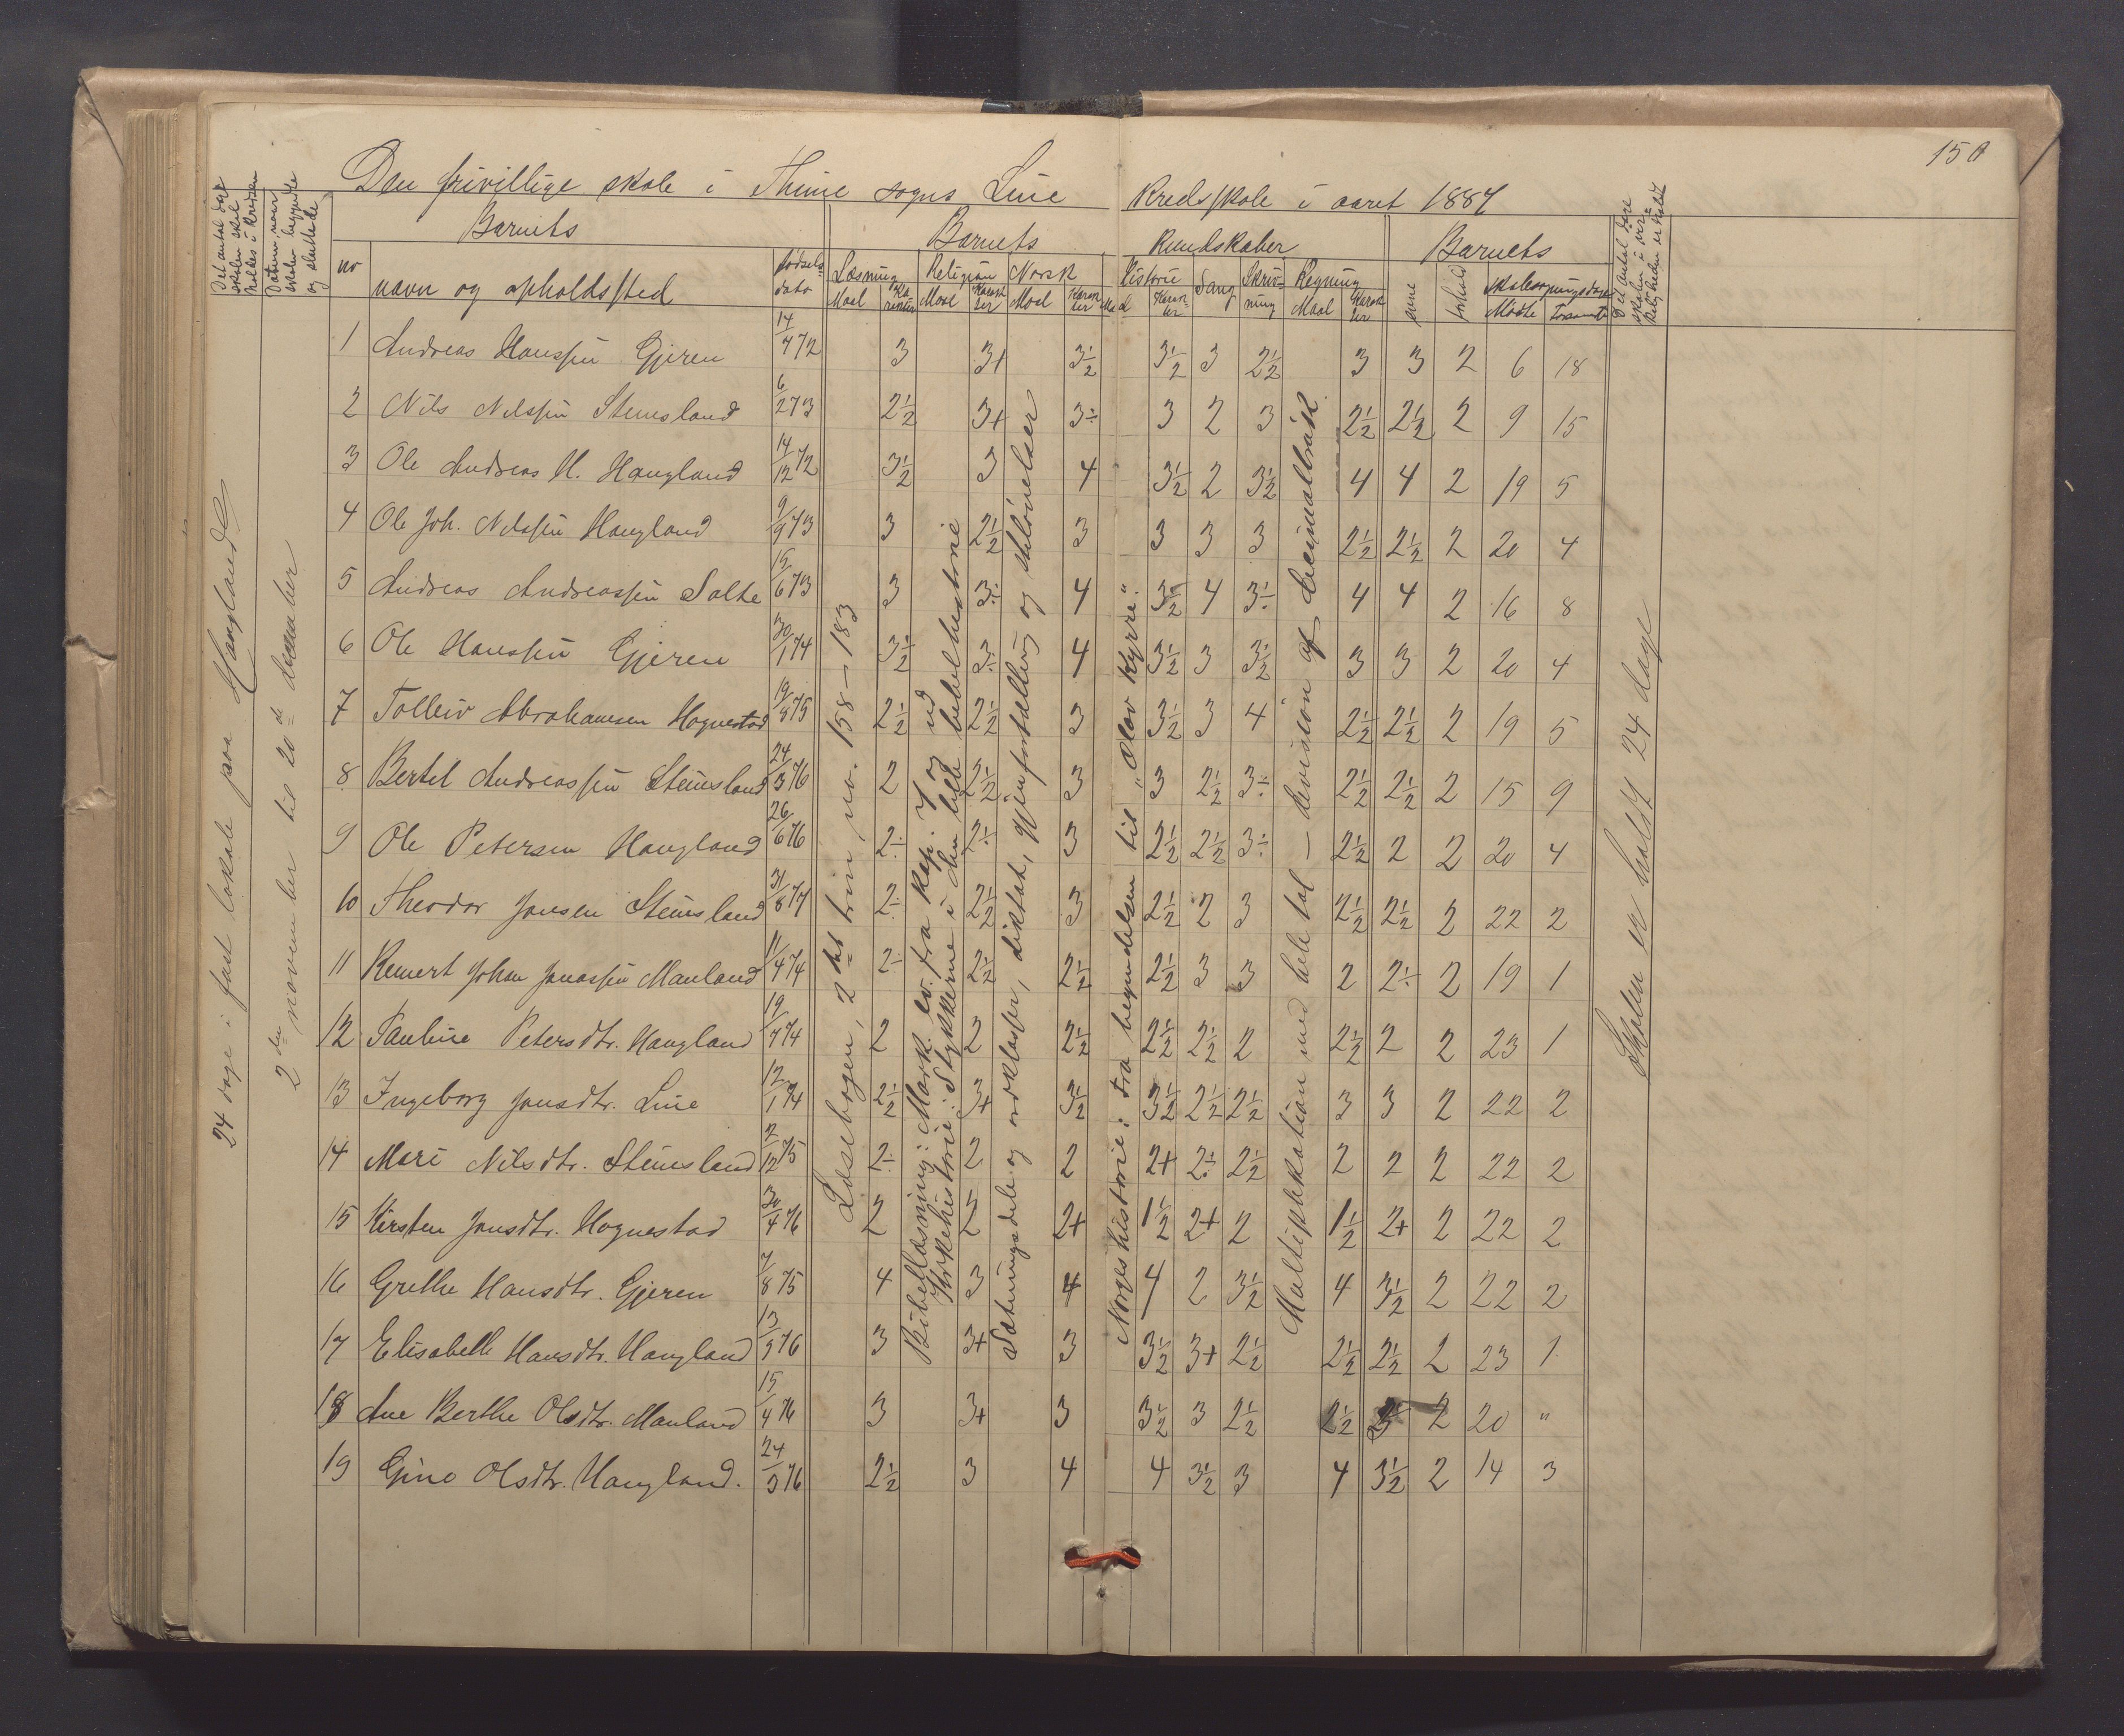 150
Den frivillige skole i Thime sogns Line Kredsskole i aaret 1887
Det antal dage skolen skal holdes i kredsen
Datum, naar skolen begyndte og sluttede
Barnets
Barnets Kundskaber
Barnets
Det antal dage skolen i virkeligheden er holdt
no navn og opholdssted fødselsdato Læsning Religion Norsk Historie Sang Skrivning Regning evne forhold skolesøgningsdage
Maal Karakter Maal Karakter Maal Karakter Maal Karakter Maal Karakter Mødte Forsømte
1 Andreas Hanssen Gjeren 14/4 72 3 3+ 3½ 3½ 3 2½ 3 3 2 6 18
2 Nils Nilssen Stensland 6/2 73 2½ 3+ 3÷ 3 2 3 2½ 2½ 2 9 15
3 Ole Andreas H. Haugland 14/12 72 3½ 3 4 3½ 2 3½ 4 4 2 19 5
4 Ole Joh. Nilssen Haugland 9/9 73 3 2½ 3 3 3 3 2½ 2½ 2 20 4
5 Andreas Andreassen Salte 15/6 73 3 3÷ 4 3½ 4 3÷ 4 4 2 16 8
6 Ole Hanssen Gjeren 30/1 74 3½ 3÷ 4 3½ 3 3½ 3 3 2 20 4
7 Tolleiv Abrahamsen Hognestad 19/9 75 2½ 2½ 3 3½ 3 4 2½ 2½ 2 19 5
8 Bertel Andreassen Stensland 24/3 76 2 2½ 3 3 2½ 3÷ 2½ 2½ 2 15 9
9 Ole Petersen Haugland 26/6 76 2÷ 2÷ 3 2½ 2½ 3÷ 2½ 2 2 20 4
10 Theodor Jonsen Stensland 31/8 74 2÷ 2½ 3 2½ 2 3 2½ 2½ 2 22 2
11 Reinert Johan Jonassen Mauland 11/4 74 2÷ 2½ 2½ 2½ 3 3 2 2÷ 2 19 1
12 Pauline Petersdtr. Haugland 19/7 74 2 2 2½ 2½ 2½ 2 2½ 2 2 23 1
13 Ingeborg Jonsdtr. Line 12/1 74 2½ 3+ 3½ 3½ 2½ 2½ 3 3 2 22 2
14 Mari Nilsdtr. Stensland 2/12 75 2÷ 2 2 2+ 2÷ 2½ 2 2 2 22 2
15 Kirsten Jonsdtr. Hognestad 30/4 76 2 2 2+ 1½ 2+ 2 1½ 2+ 2 22 2
16 Grethe Hansdtr. Gjeren 7/8 75 4 3 4 4 2 3½ 4 3½ 2 22 2
17 Elisabeth Hansdtr. Haugland 13/9 76 3 3+ 3 3½ 3+ 2½ 2½ 2½ 2 23 1
18 Ane Berthe Olsdtr. Mauland 15/4 76 3 3+ 3 3½ 3 2½ 2½ 3 2 20 "
19 Gine Olsdtr. Haugland. 24/3 76 2½ 3 4 4 3½ 3 4 3½ 2 14 3
24 dage i fast lokale paa Haugland
2den november til 20de december
Læsebogen, 2det trin, no. 158–183
Bibellæsning: Mark. ev. fra kap. 7 og ud
Kirkehistorie: Stykkerne i den lille bibelhistorie
Sætningsdele og ordklasser, diktat, gjenfortælling og stiløvelser
Norgeshistorie: Fra begyndelsen til "Olav Kyrre".
Multiplikation med hele tal – Revision af decimalbrøk
Skolen er holdt 24 dage